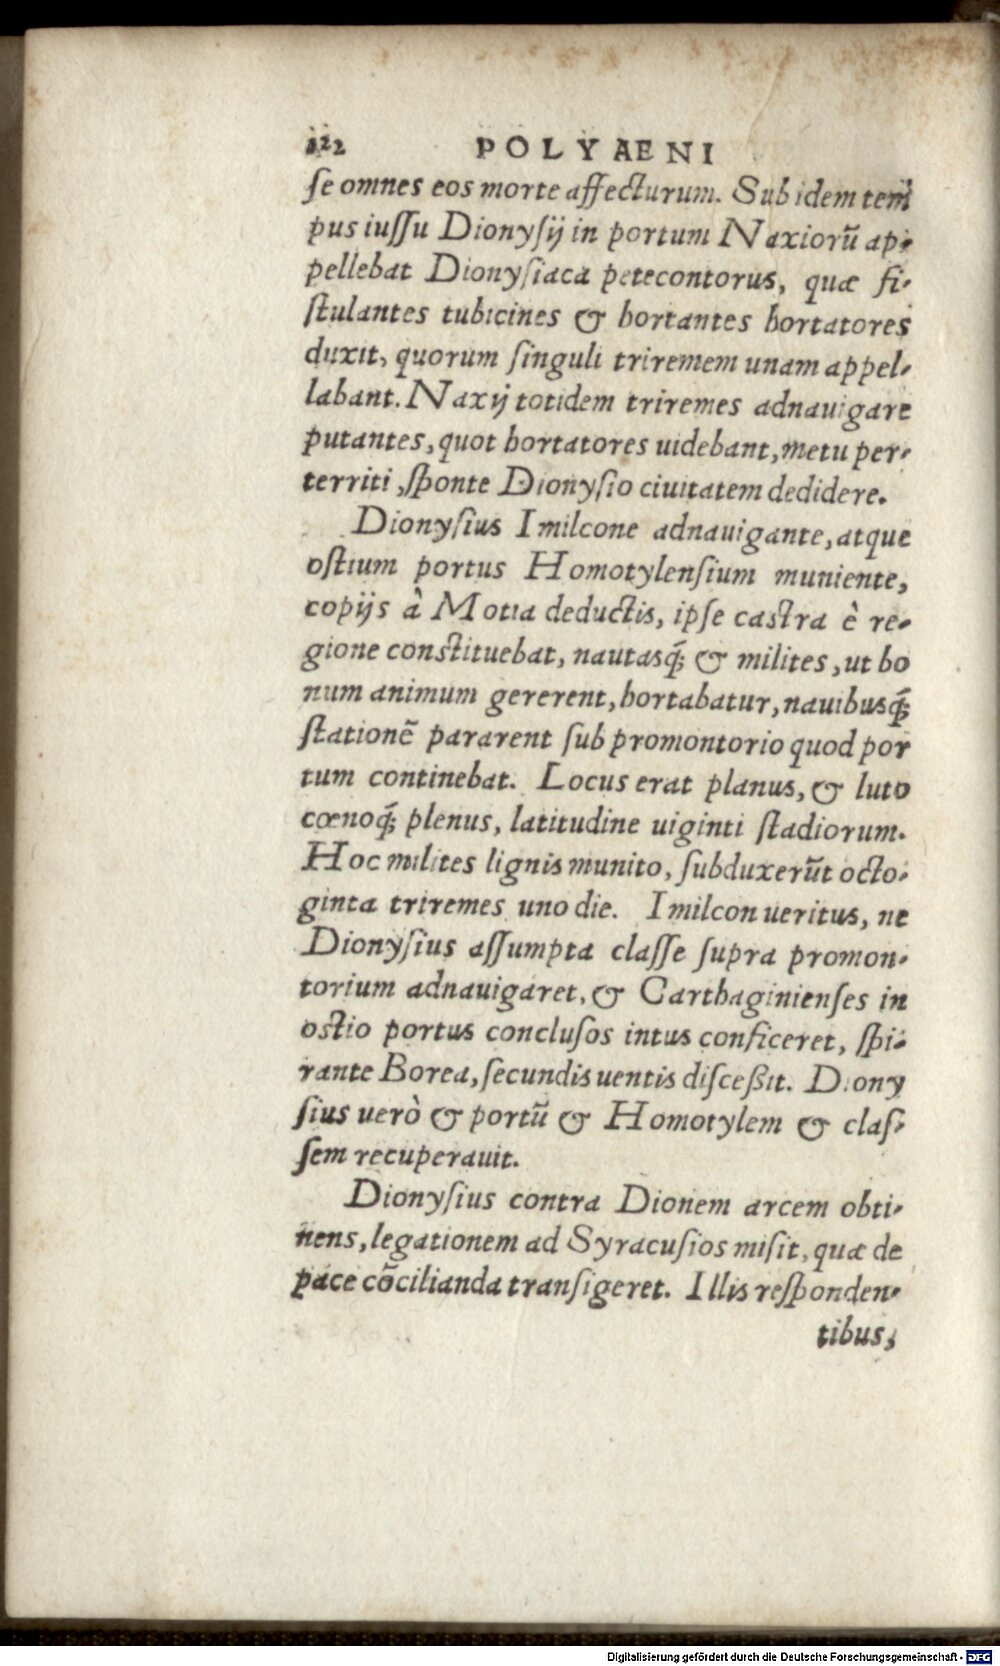 122 POLYAENI
ſe omnes eos morte affecturum. Sub idem tem
pus iuſſu Dionyſij in portum Naxiorū ap-
pellebat Dionyſiaca petecontorus, quæ fi-
ſtulantes tubicines & hortantes hortatores
duxit, quorum ſinguli triremem unam appel-
labant. Naxij totidem triremes adnauigare
putantes, quot hortatores uidebant, metu per-
territi, ſponte Dionyſio ciuitatem dedidere.
Dionyſius Imilcone adnauigante, atque
oſtium portus Homotylenſium muniente,
copijs à Motia deductis, ipſe caſtra è re-
gione conſtituebat, nautasq́; & milites, ut bo
num animum gererent, hortabatur, nauibusq́;
ſtationē pararent ſub promontorio quod por
tum continebat. Locus erat planus, & luto
cœnoq́; plenus, latitudine uiginti ſtadiorum.
Hoc milites lignis munito, ſubduxerūt octo-
ginta triremes uno die. Imilcon ueritus, ne
Dionyſius aſſumpta claſſe ſupra promon-
torium adnauigaret, & Carthaginienſes in
oſtio portus concluſos intus conficeret, ſpi-
rante Borea, ſecundis uentis diſceßit. Diony
ſius uerò & portū & Homotylem & claſ-
ſem recuperauit.
Dionyſius contra Dionem arcem obti-
nens, legationem ad Syracuſios miſit, quæ de
pace cōcilianda tranſigeret. Illis reſponden-
tibus,
Digitalisierung gefördert durch die Deutsche Forschungsgemeinschaft - DFG